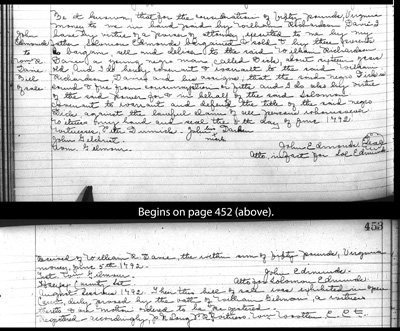 Be it known, that for the consideration of fifty pounds, Virginia
money to me in hand paid by William Richardson Davie I
have by virtue of a power of attorney executed to me by my
John
Edmunds
father Solomon Edmunds bargained & sold & by these presents
do bargain, sell and deliver to the said William Richardson
Wm R
Davie
Davie a young negro man called Dick about sixteen years
old And I do hereby convey to the said William
Bill
of sale
Richardson Davie and his assigns, that the said negro Dick is
sound & free from consumption or fitts and I do also by virtue
of the said power for & in behalf of the said Solomon
covenant to warrant and defend the title of the said negro
Dick against the lawful claim of all persons whomsoever
Witness my hand and seal the 5th day of June 1792.
Witnesses,
John Gilchrist
Wm. Gilmour.
mark
John Edmunds (Seal)
Atto. in fact for Sol Edmunds
Begins on page 452 (above).
453
Received of William R. Davie, the within sum of fifty pounds, Virginia
money, June 5th 1792.
John Edmunds.
Test. Wm Gilmour.
Atto for Solomon Edmunds.
Halifax County Sct.
August Session 1792. Then this bill of sale was exhibited in open
Court, duly proved by the oath of William Gilmour, a witness
thereto & on motion ordered to be registered
Registered accordingly, Wm Wootten C. C. C.